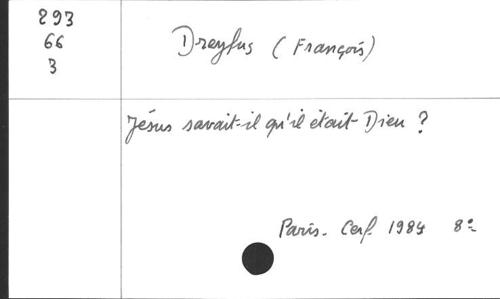 293
66
3
Dreyfus (François)
Jésus savait-il qu'il était Dieu ?
Paris. Cerf. 1984 8°